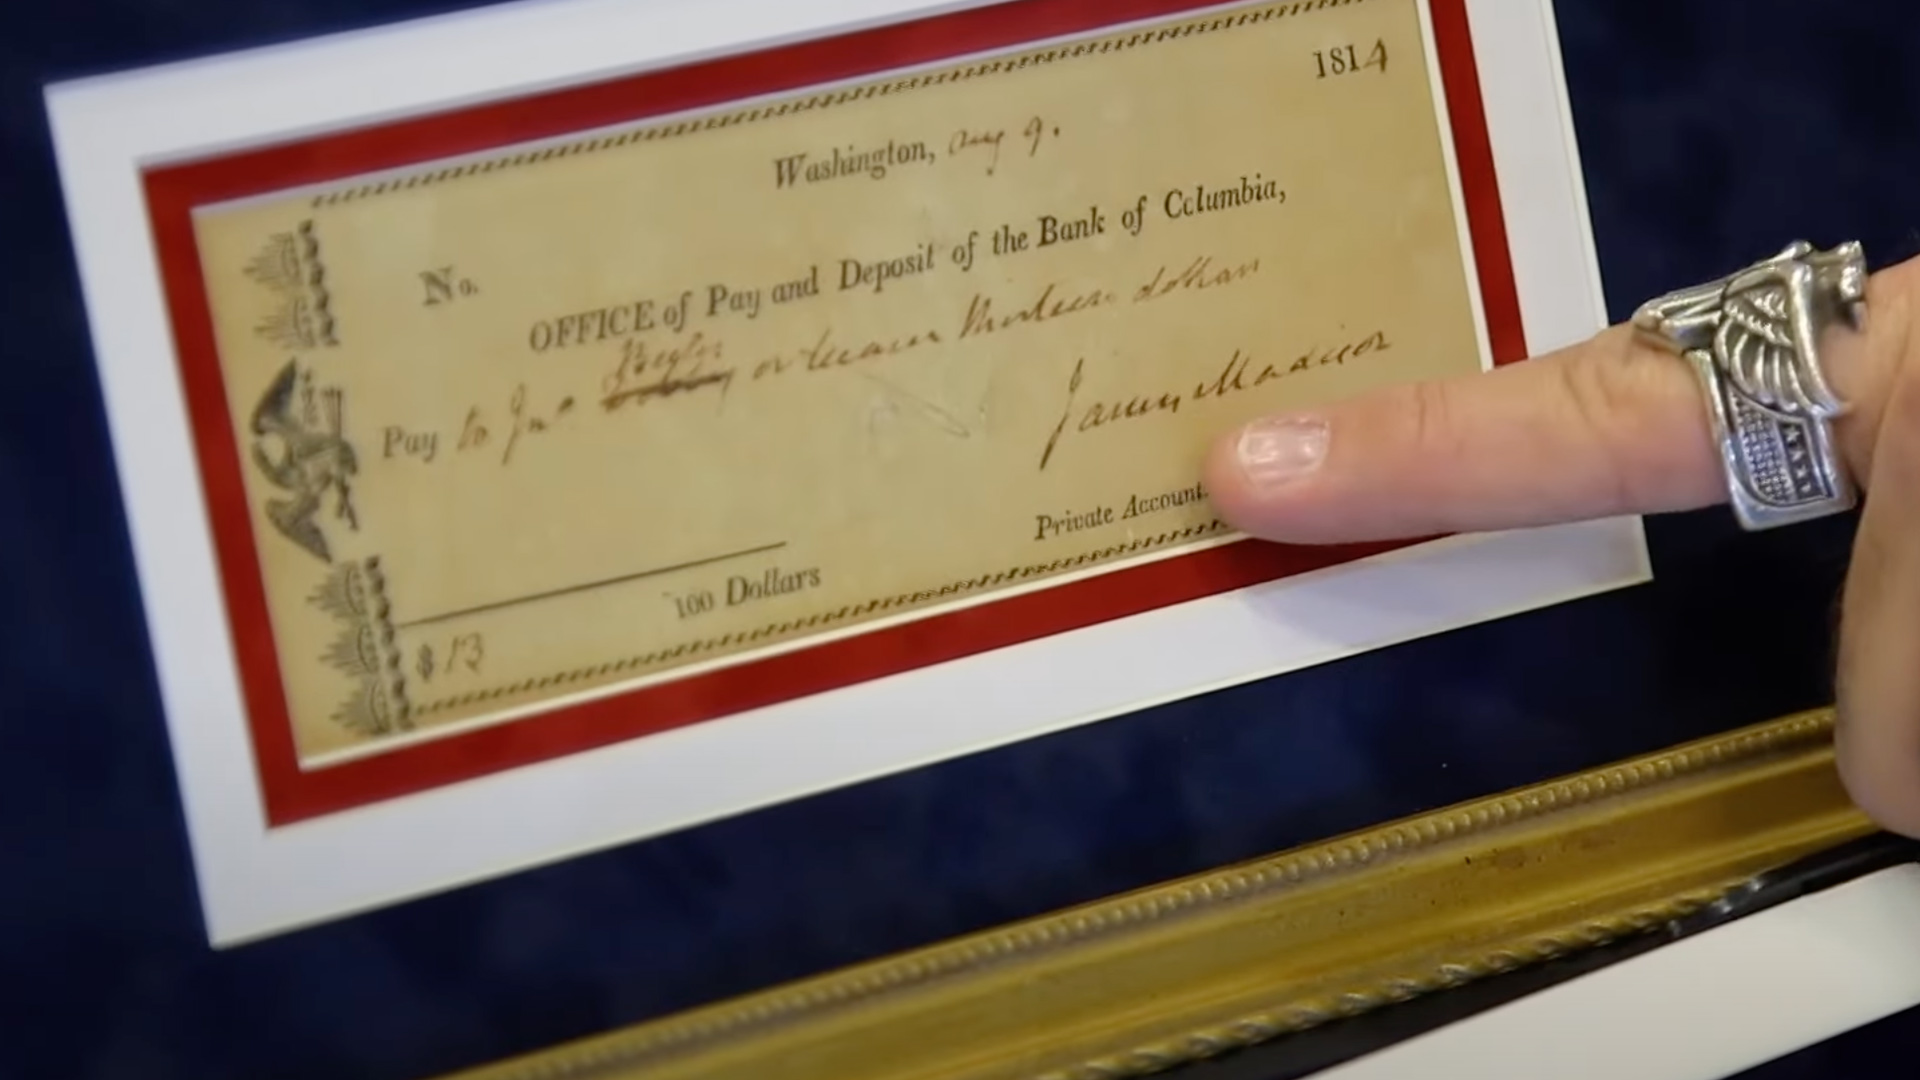 1814
Washington, Aug 9.
No.
OFFICE of Pay and Deposit of the Bank of Columbia,
Pay to Jno or bearer thirteen dollars
James Madison
Private Account.
100 Dollars
$ 13